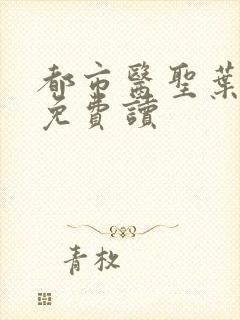 都市醫聖葉
免費讀
青枚